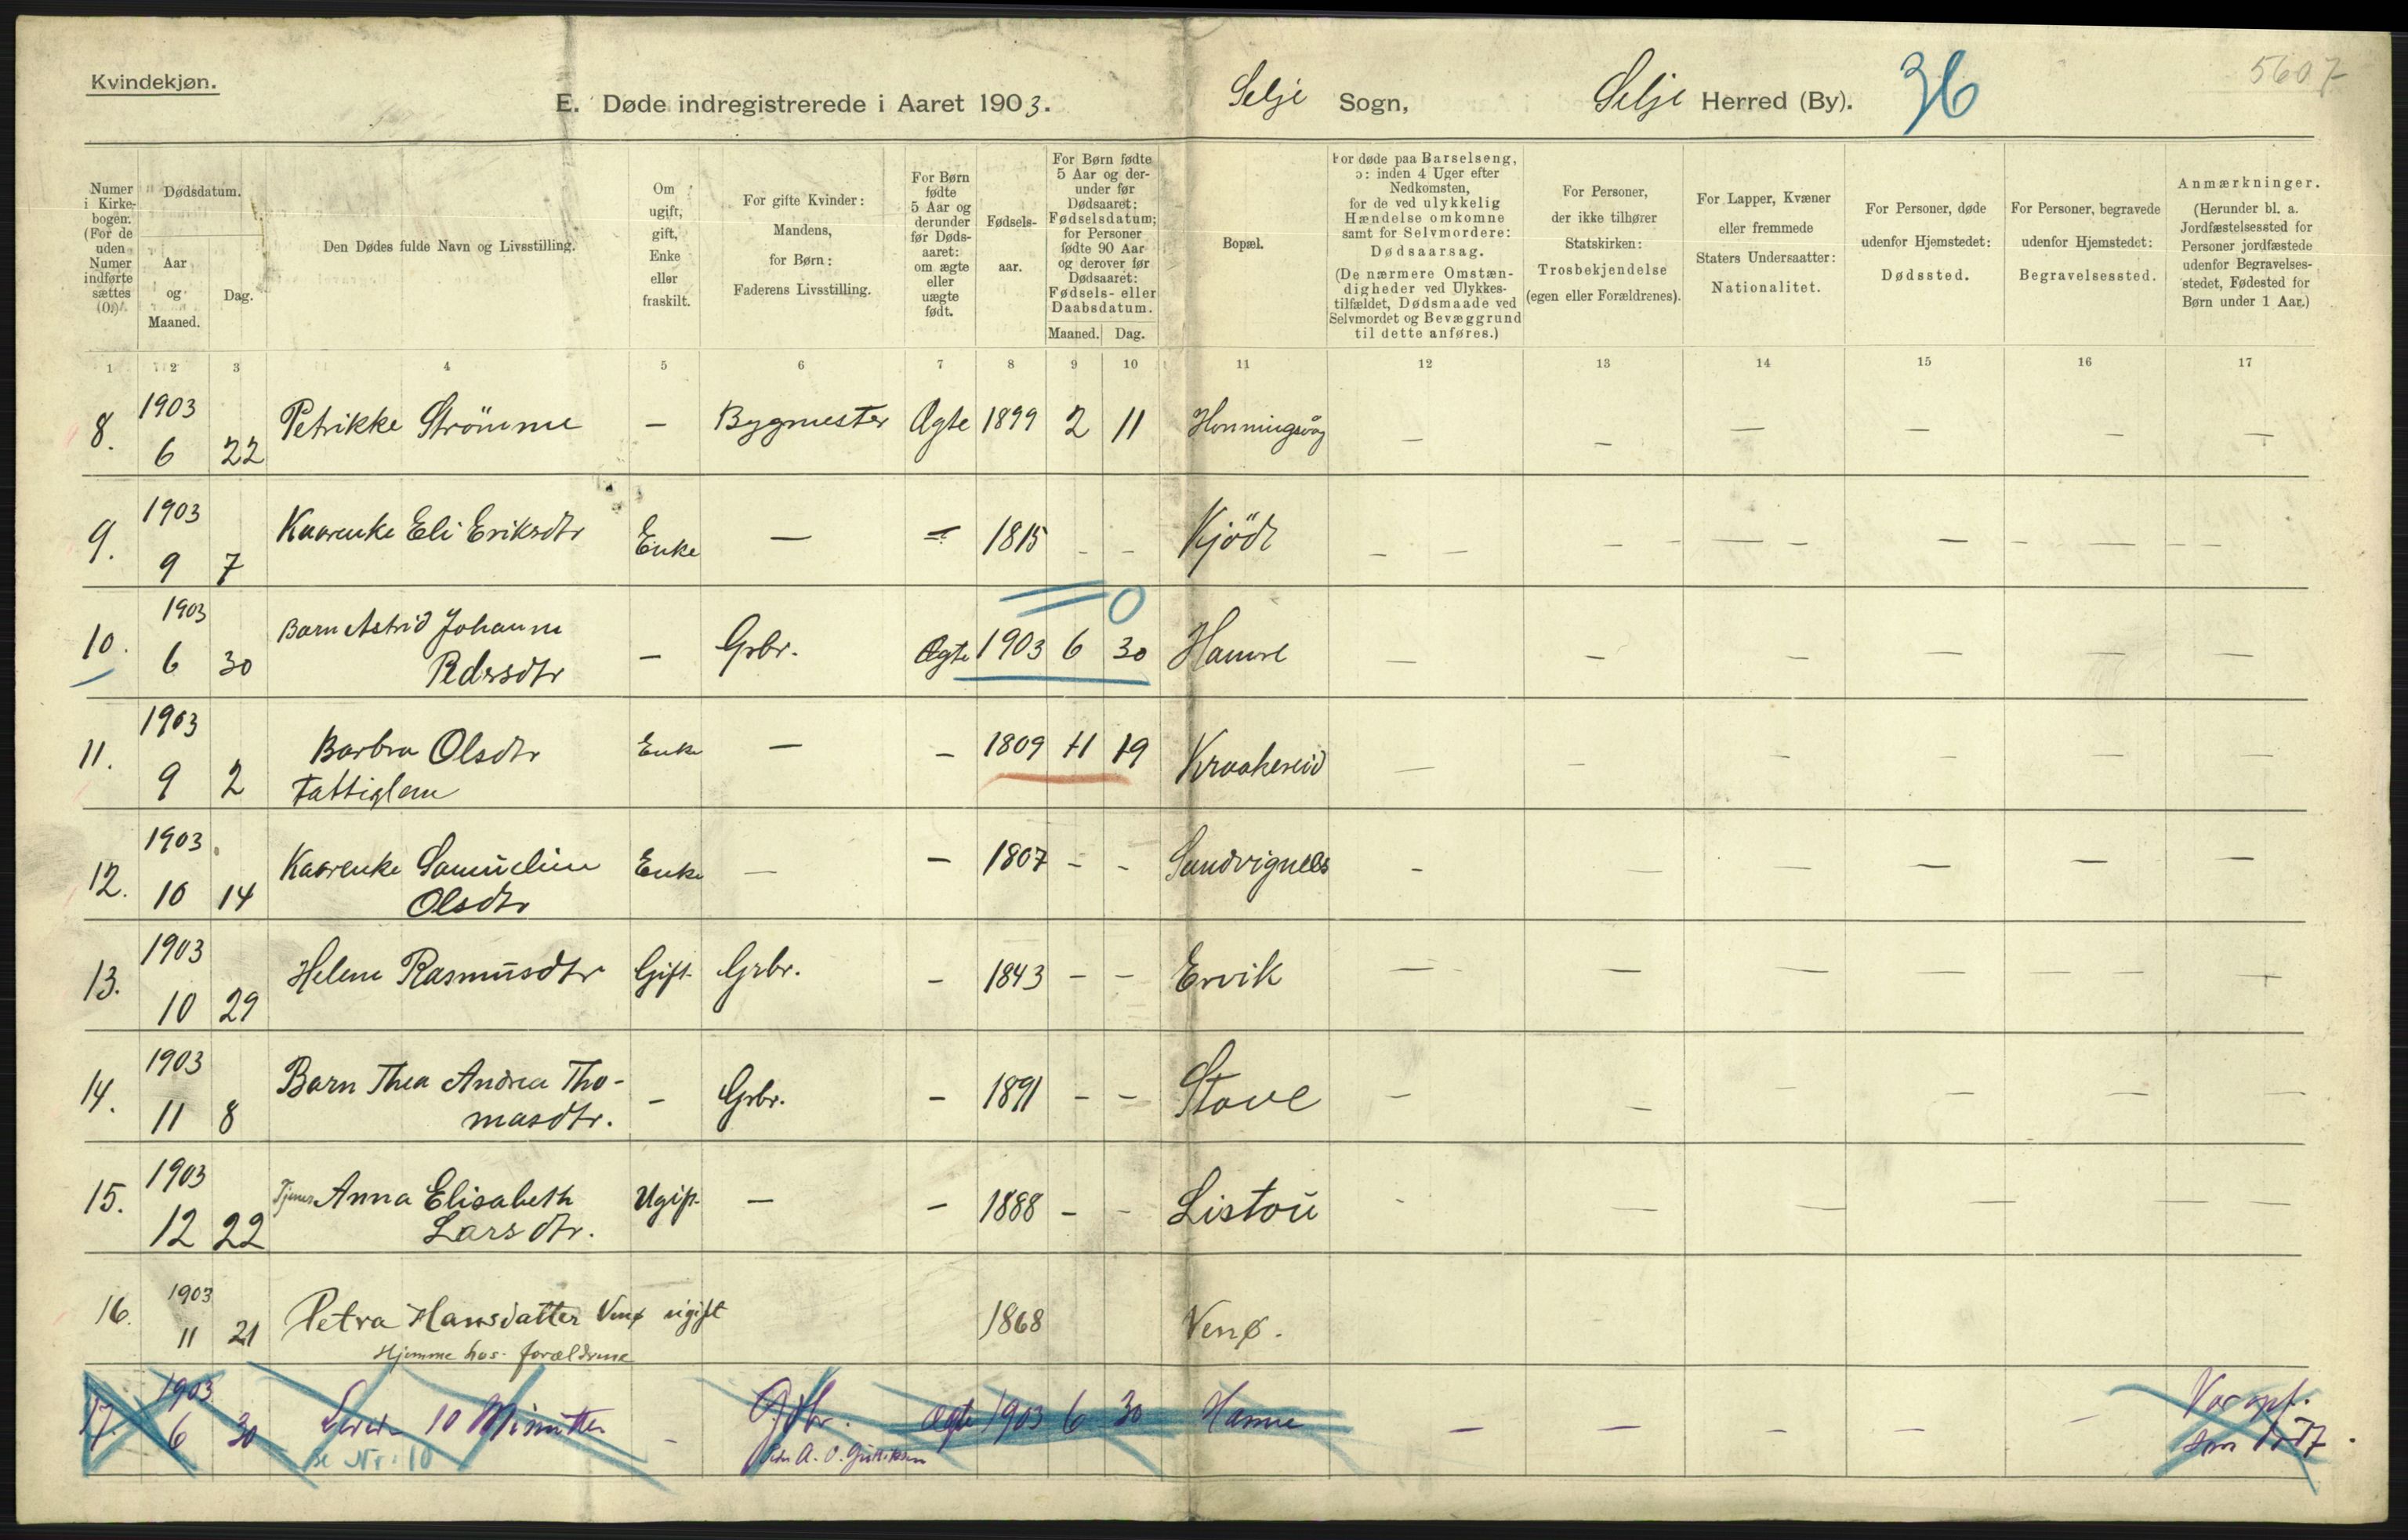 Kvindekjøn.
5607
E. Døde indregistrerede i Aaret 1903. Selje Sogn, Selje Herred (By). 36
Numer i Kirke-bogen. (For de uden Numer indførte sættes 0).
Dødsdatum.
Aar og Maaned.
Dag.
Den Dødes fulde Navn og Livsstilling.
Om ugift, gift, Enke eller fraskilt.
For gifte Kvinder: Mandens, for Børn: Faderens Livsstilling.
For Børn fødte 5 Aar og derunder før Døds-aaret: om ægte eller uægte født.
Fødsels-aar.
For Børn fødte 5 Aar og der-under før Dødsaaret: Fødselsdatum; for Personer fødte 90 Aar og derover før Dødsaaret: Fødsels- eller Daabsdatum.
Maaned. Dag.
Bopæl.
For døde paa Barselseng, ɔ: inden 4 Uger efter Nedkomsten, for de ved ulykkelig Hændelse omkomne samt for Selvmordere: Dødsaarsag.
(De nærmere Omstæn-digheder ved Ulykkes-tilfældet, Dødsmaade ved Selvmordet og Bevæggrund til dette anføres.)
For Personer, der ikke tilhører Statskirken: Trosbekjendelse (egen eller Forældrenes).
For Lapper, Kvæner eller fremmede Staters Undersaatter: Nationalitet.
For Personer, døde udenfor Hjemstedet: Dødssted.
For Personer, begravede udenfor Hjemstedet: Begravelsessted.
Anmærkninger.
(Herunder bl. a. Jordfæstelsessted for Personer jordfæstede udenfor Begravelses-stedet, Fødested for Børn under 1 Aar.)
1 2 3 4 5 6 7 8 9 10 11 12 13 14 15 16 17
8. 1903 6 22 Petrikke Strömme — Bygmester Ægte 1899 2 11 Honningsvåg — — — — — —
9. 1903 9 7 Kaarenke Eli Eriksdtr Enke — — 1815 - - Kjöde — — — — — — — — — — —
0
10. 1903 6 30 Barn Astrid Johanne
Pedersdtr — Grbr. Ægte 1903 6 30 Hamre — — — — — —
11. 1903 9 2 Barbra Olsdtr Enke — — 1809 11 19 Kraakeneid — — — — — —
Fattiglem
12. 1903 10 14 Kaarenke Samueline Enke — — 1807 - - Sandvignes - — — — — —
Olsdtr
13. 1903 10 29 Helene Rasmusdtr Gift Grbr. - 1843 - - Ervik — — — — — — —
14. 1903 11 8 Barn Thea Andrea Tho-
masdtr. — Grbr. - 1891 - - Stave — — — — — —
15. 1903 12 22 Tjener Anna Elisabeth Ugift — — 1888 - - Listou - — — — — —
Larsdtr.
16. 1903 11 21 Petra Hansdatter Venø ugift 1868 Venø.
Hjemme hos forældrene
17. 1903 6 30 Levede 10 Minutter - Gbr. ægte 1903 6 30 Hamre — — — — —
se Nr. 10
Var opf.
som